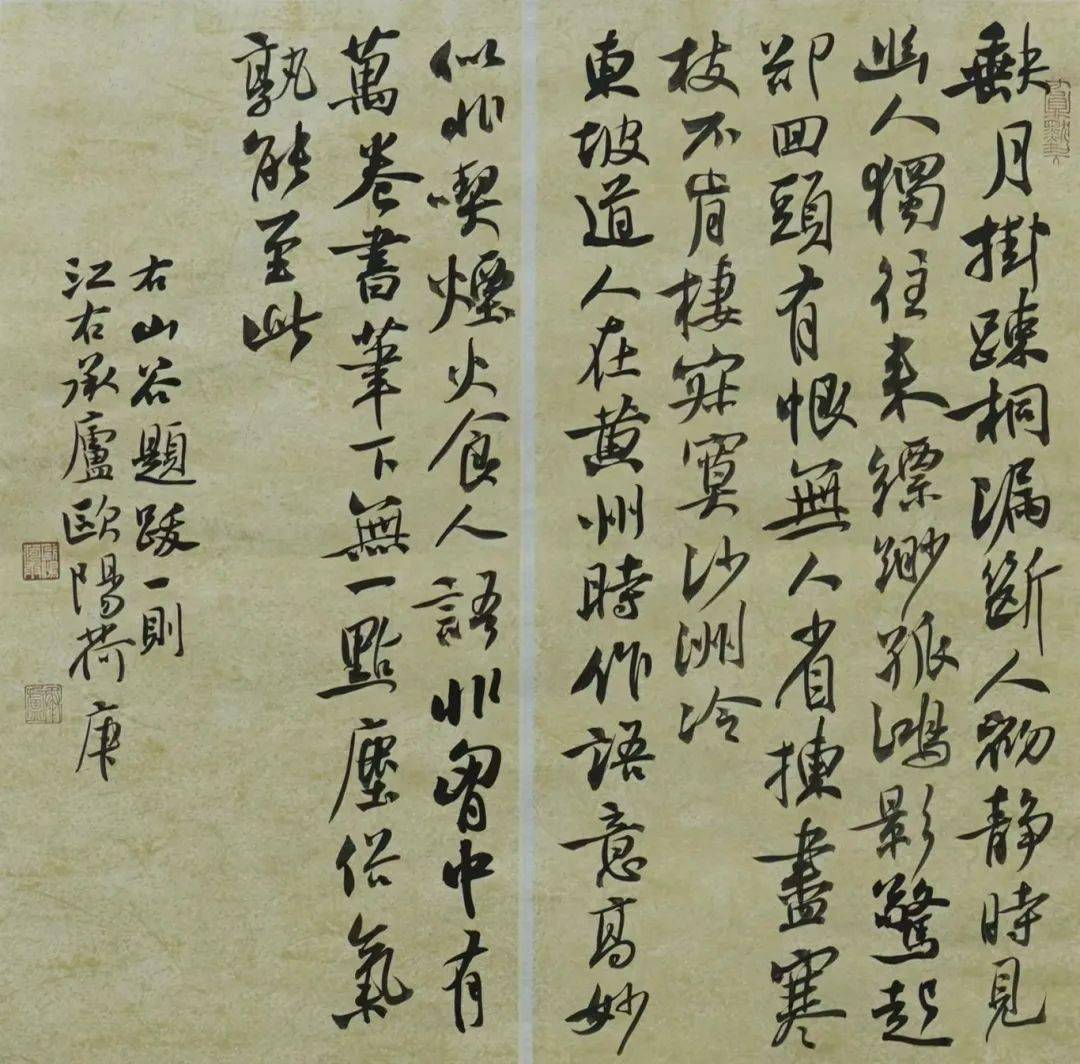 缺月掛疎桐漏斷人初静時見
幽人獨往來縹緲孤鴻影驚起
卻回頭有恨無人省揀盡寒
枝不肯棲寂寞沙洲冷
東坡道人在黄州時作語意高妙
似非喫煙火食人語非胷中有
萬卷書筆下無一點塵俗氣
孰能至此
右山谷題跋一則
江右承廬歐陽荷庚